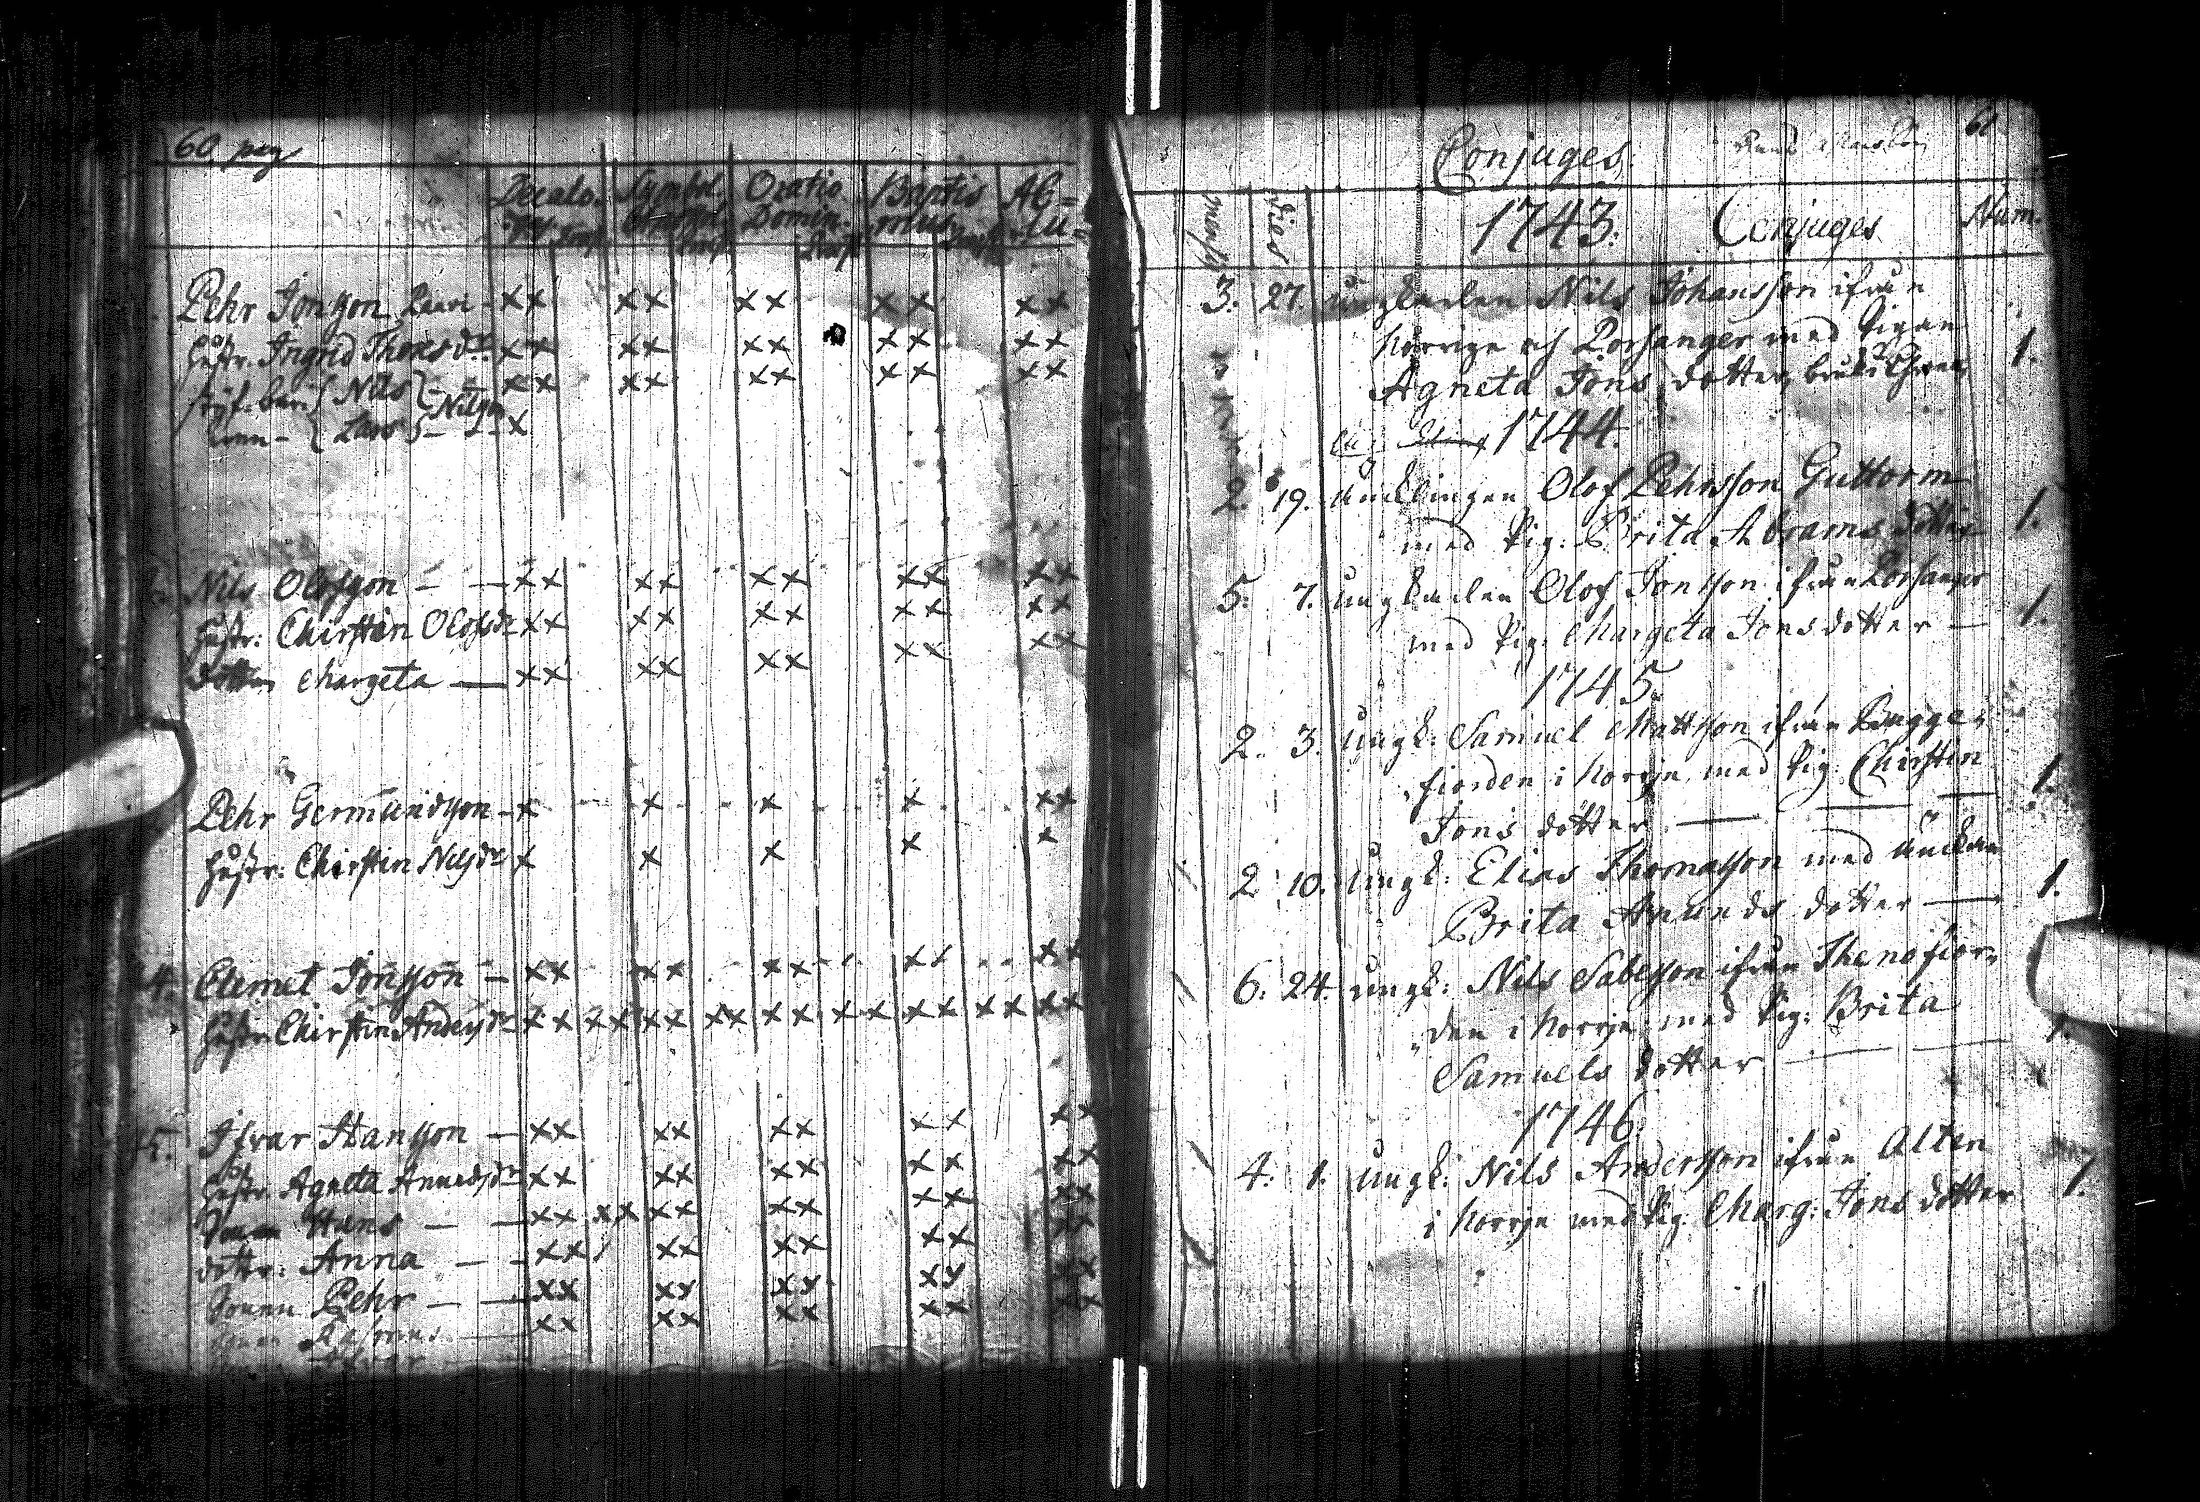 60 pag
Decalo- Symbol Oratio Baptis AC=
Domin. mus lu=
Pehr Jonsson Lauri - xx xx xx xx xx
hustr. Ingrid Thomsdr xx xx xx xx xx
styf: bar { Nils } - xx xx xx xx xx
nen - { Lars } Nilson - x
Nils Olofsson - - xx xx xx xx xx
hustr: Chirstin Olofsdr xx xx xx xx xx
dottren Margeta - xx xx xx xx xx
Pehr Germundsson - x x x x xx
hustr: Chirstin Nilsdr x x x x x
4. Clemet Jonsson - xx xx xx xx xx
hustr: Chirstin Andersdr xx xx xx xx xx xx xx xx xx
5. Ifvar Hansson - xx xx xx xx xx
hustr. Agneta Amundsdr xx xx xx xx xx
Sonen Hans - - xx xx xx xx xx xx
dottr: Anna - - xx xx xx xx xx
Sonen Pehr - - xx xx xx xx xx
Sonen - xx xx xx xx xx
61
Conjuges.
mens dies 1743. Conjuges Num.
3. 27. ungkarlen Nils Johansson ifrån
Norrige och Porsanger med Pigan
Agneta Jons dotter, 1.
1744.
2. 19. änklingen Olof Pehrsson Guttorm
med Pig: Brita Abrams dotter 1.
5. 7. ungkarlen Olof Jonsson ifrån Porsanger
med Pig: Margeta Jonsdotter - 1.
1745.
2. 3. ungk: Samuel Mattsson ifrån
fiorden i Norrje med Pig: Chirstin
Jons dotter - 1.
2. 10. Ungk: Elias Thomasson med änkan
Brita Amunds dotter - 1.
6. 24. ungk: Nils Sabesson ifrån Thenofior-
den i Norrje med Pig: Brita
Samuels dotter - 1.
1746.
4. 1. Ungk: Nils Andersson ifrån Alten
i Norrje med Pig: Marg: Jons dotter 1.